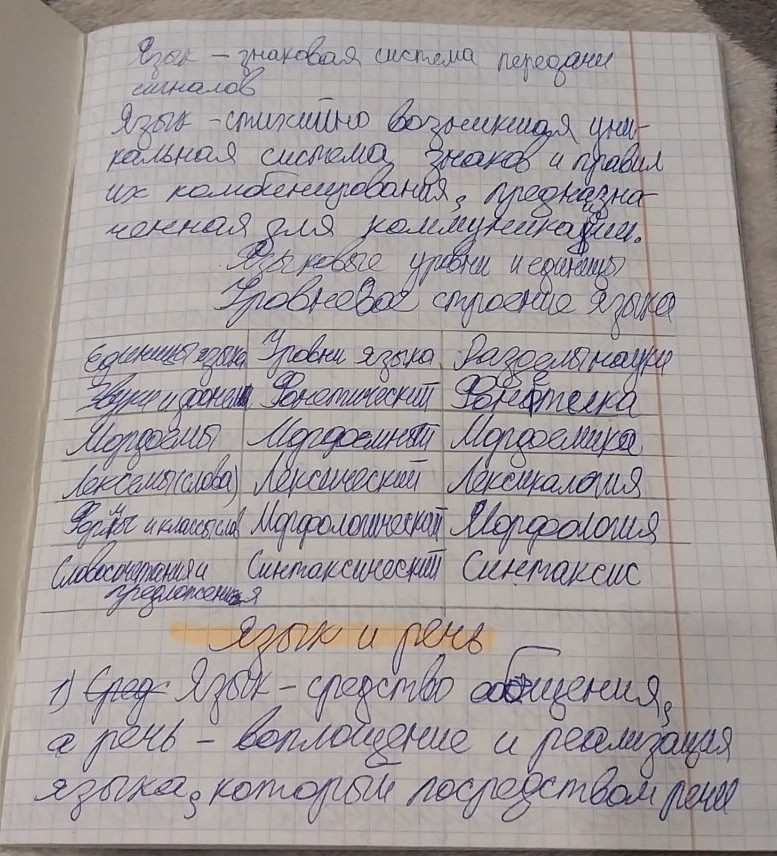 Язык – знаковая система передачи
сигналов
Язык – стихийно возникшая уни-
кальная система знаков и правил
их комбенирования, предназна-
ченная для коммуникации.
Языковые уровни и единицы
Уровневое строение языка
Единицы языка Уровни языка Разделы науки
Звуки и фонемы Фонетический Фонетика
Морфемы Морфемный Морфемика
Лексемы (слова) Лексический Лексикалогия
Формы и классы слов Морфологический Морфология
Словосочетания и Синтаксический Синтаксис
предложения
Язык и речь
1) Сред Язык – средство общения,
а речь – воплощение и реализация
языка, который посредством речи